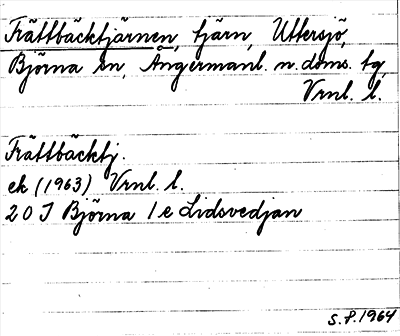 Frättbäcktjärnen, tjärn, Uttersjö,
Björna sn, Ångermanl. n. doms. tg,
Vrnl. l.
Frättbäcktj.
ek (1963) Vrnl. l.
20 J Björna 1 e Lidsvedjan
S.P. 1964